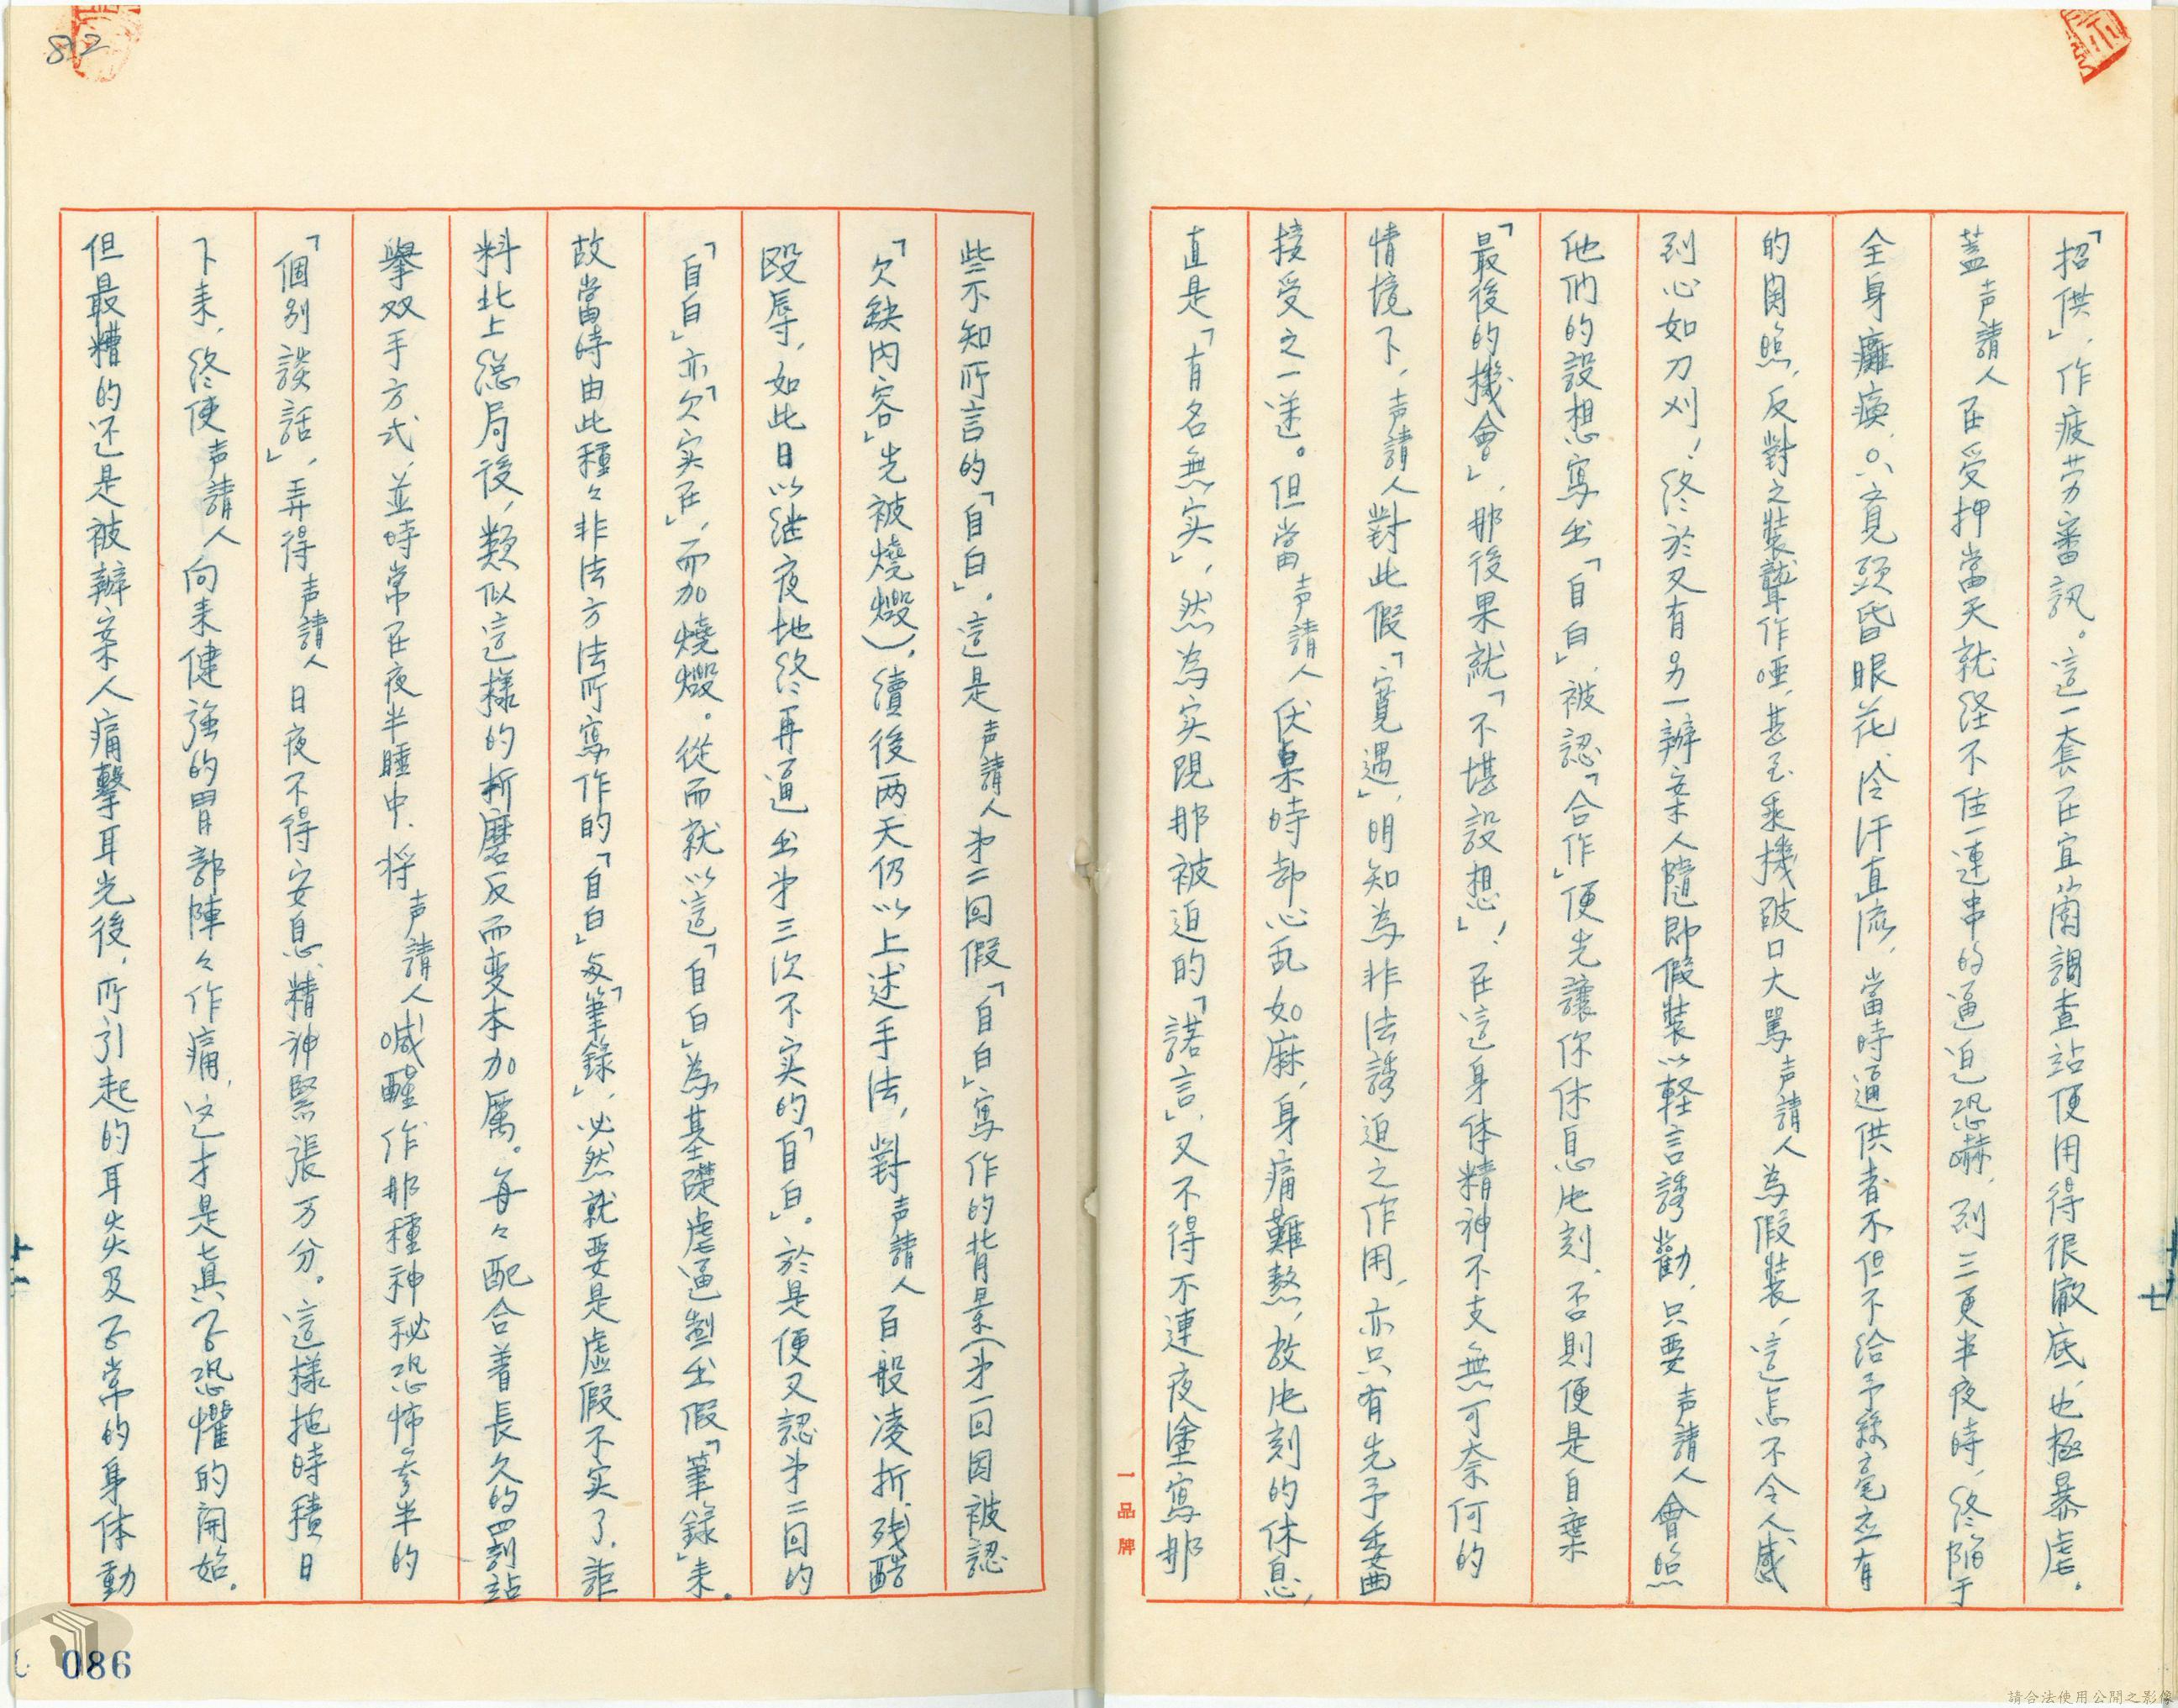 「招供」，作疲劳審訊。這一套在宜蘭調查站便用得很徹底，也極暴虐。
蓋声請人在受押當天就経不住一連串的逼迫恐嚇，到三更半夜時，終陷于
全身癱瘓，只覚頭昏眼花，冷汗直流，當時逼供者不但不給予絲毫应有
的関照，反對之裝聾作啞，甚至乘機破口大罵声請人為假裝，這怎不令人感
到心如刀刈！終於又有另一辦案人隨即假裝以軽言誘勸，只要声請人會照
他们的設想寫出「自白」，被認「合作」便先讓你休息片刻，否則便是自棄
「最後的機會」，那後果就「不堪設想」！在這身体精神不支無可奈何的
情境下，声請人對此假「寬遇」，明知為非法誘迫之作用，亦只有先予委曲
接受之一送。但當声請人伏桌時却心乱如麻，身痛難熬，故片刻的休息，
直是「有名無实」，然為实現那被迫的「諾言」，又不得不連夜塗寫那
些不知所言的「自白」。這是声請人第二回假「自白」寫作的背景（第一回因被認
「欠缺内容」先被燒燬），續後两天仍以上述手法，對声請人百般凌折残酷
毆辱，如此日以継夜地終再逼出第三次不实的「自白」。於是便又認第二回的
「自白」亦「欠实在」，而加燒燬。從而就以這「自白」為基礎虐逼製出假「筆錄」来。
故當時由此種々非法方法所寫作的「自白」与「筆錄」，必然就要是虛假不实了，詎
料北上總局後，類似這樣的折磨反而变本加厲。每々配合着長久的罰站
舉双手方式，並時常在夜半睡中，将声請人喊醒作那種神秘恐怖参半的
「個別談話」，弄得声請人日夜不得安息，精神緊張万分。這樣拖時積日
下来，終使声請人向来健強的胃部陣々作痛，这才是真正恐懼的開始。
但最糟的还是被辦案人痛擊耳光後，所引起的耳炎及否常的身体動
812
086
一品牌
十七
請合法使用公開之影像